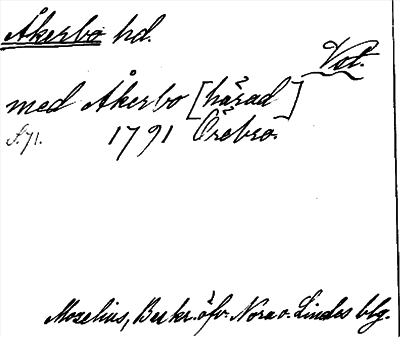 Åkerbo hd.
Vst.
med Åkerbo [härad]
S. 71. 1791 Örebro.
Mozelius, Beskr. öfv. Nora o. Lindes blg.